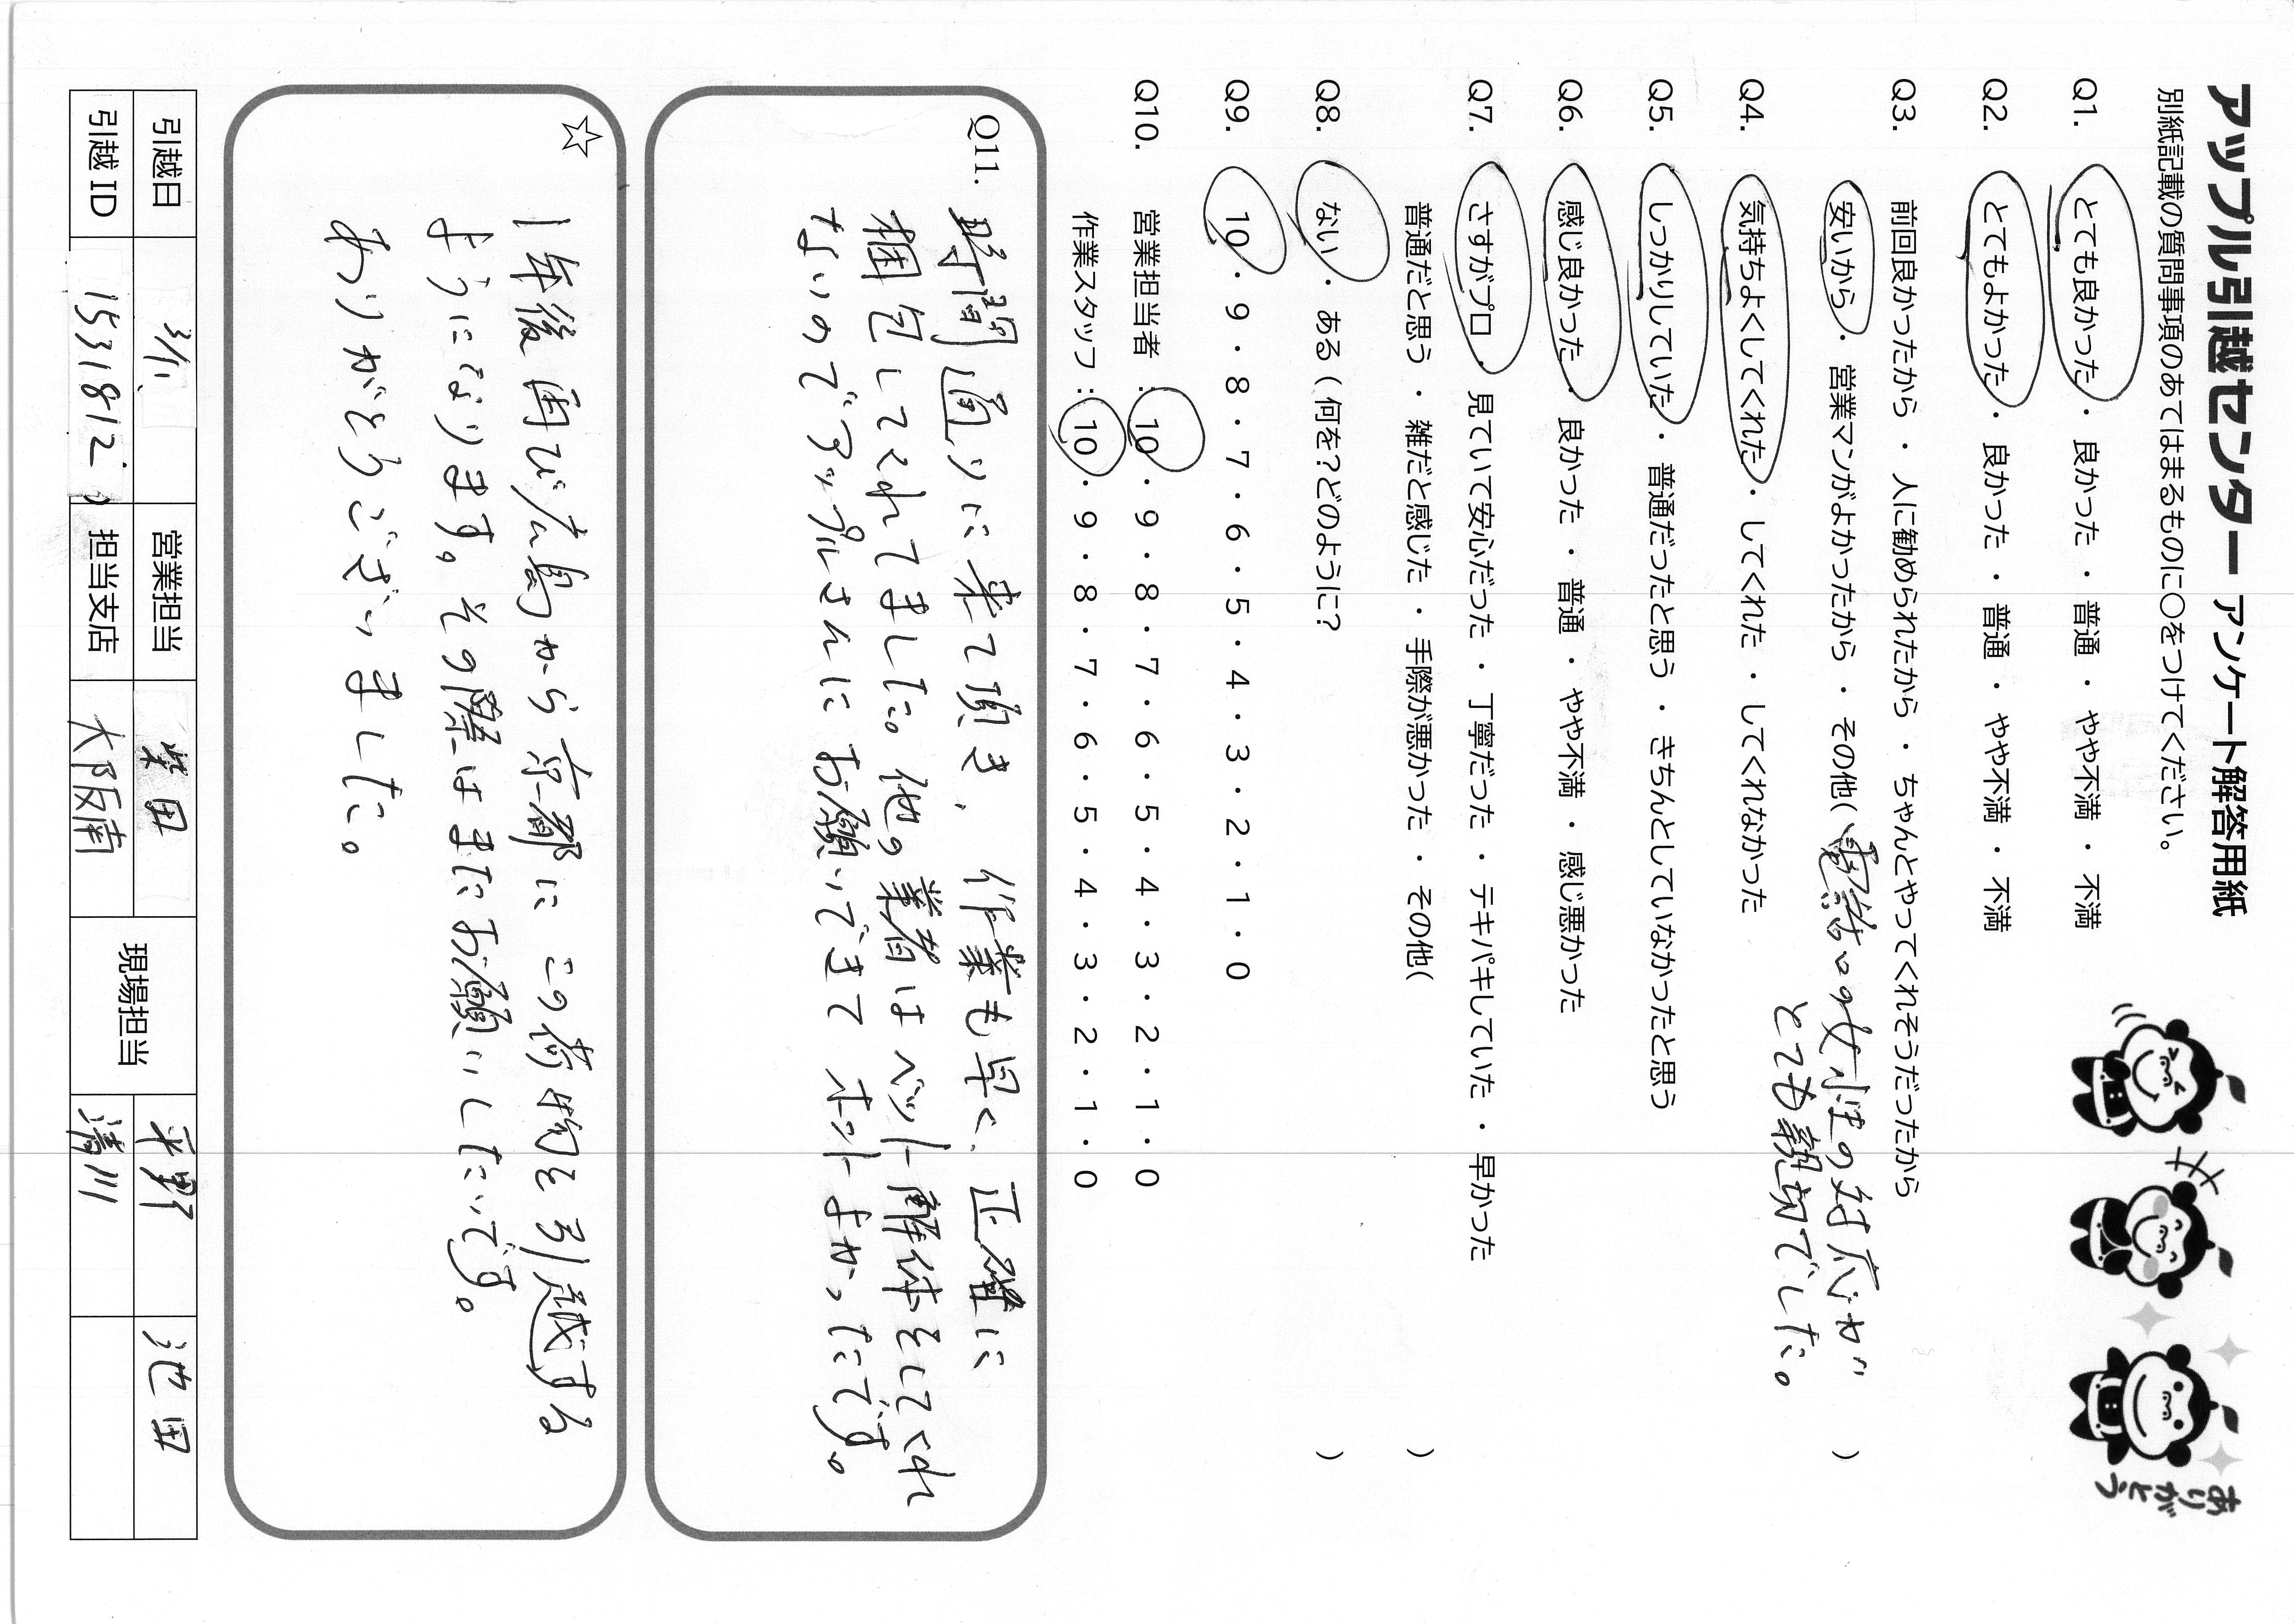 アップル引越センター アンケート解答用紙
別紙記載の質問事項のあてはまるものに〇をつけてください。
ありがとう
Q1. とても良かった ・ 良かった ・ 普通 ・ やや不満 ・ 不満
Q2. とてもよかった ・ 良かった ・ 普通 ・ やや不満 ・ 不満
Q3. 前回良かったから ・ 人に勧められたから ・ ちゃんとやってくれそうだったから
安いから ・ 営業マンがよかったから ・ その他( 電話の女性の対応が )
とても親切でした。
Q4. 気持ちよくしてくれた ・ してくれた ・ してくれなかった
Q5. しっかりしていた ・ 普通だったと思う ・ きちんとしていなかったと思う
Q6. 感じ良かった ・ 良かった ・ 普通 ・ やや不満 ・ 感じ悪かった
Q7. さすがプロ ・ 見ていて安心だった ・ 丁寧だった ・ テキパキしていた ・ 早かった
普通だと思う ・ 雑だと感じた ・ 手際が悪かった ・ その他( )
Q8. ない ・ ある ( 何を?どのように? )
Q9. 10 ・ 9 ・ 8 ・ 7 ・ 6 ・ 5 ・ 4 ・ 3 ・ 2 ・ 1 ・ 0
Q10. 営業担当者 : 10 ・ 9 ・ 8 ・ 7 ・ 6 ・ 5 ・ 4 ・ 3 ・ 2 ・ 1 ・ 0
作業スタッフ : 10 ・ 9 ・ 8 ・ 7 ・ 6 ・ 5 ・ 4 ・ 3 ・ 2 ・ 1 ・ 0
Q11. 時間通りに来て頂き、作業も早く、正確に
梱包してくれてました。他の業者はベット解体をしてくれ
ないのでアップルさんにお願いできて ホントよかったです。
☆ 1年後再び広島から京都にこの荷物を引越する
ようになります。その際はまたお願いしたいです。
ありがとうございました。
引越日 3/1 営業担当 現場担当 平野 池田
引越 ID 1531812 担当支店 大阪南 清川